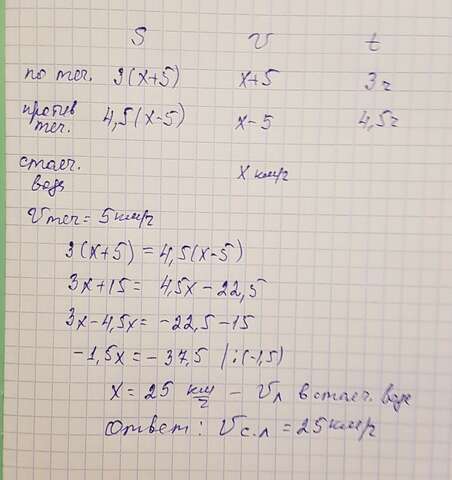 S v t
по теч. 3(x+5) x+5 3 ч
против 4,5(x-5) x-5 4,5 ч
теч.
стоеч. x км/ч
воде
Vтеч = 5 км/ч
3(x+5) = 4,5(x-5)
3x+15 = 4,5x-22,5
3x-4,5x = -22,5-15
-1,5x = -37,5 /:(-1,5)
x = 25 км/ч - Vл в стоеч. воде
Ответ: Vс.л = 25 км/ч